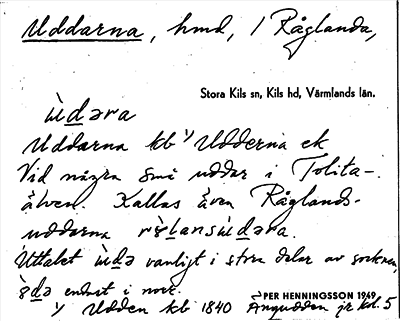 Uddarna, hmd, / Råglanda,
Stora Kils sn, Kils hd, Värmlands län.
ùdəra
Uddarna kb 1/ Udderna ek
Vid några små uddar i Tolita-
älven. Kallas även Råglands-
uddarna
Uttalet ùdə vanligt i stora delar av socknen,
endast i norr.
PER HENNINGSSON 1949
1/ Udden kb 1840 Ängudden jr kol. 5